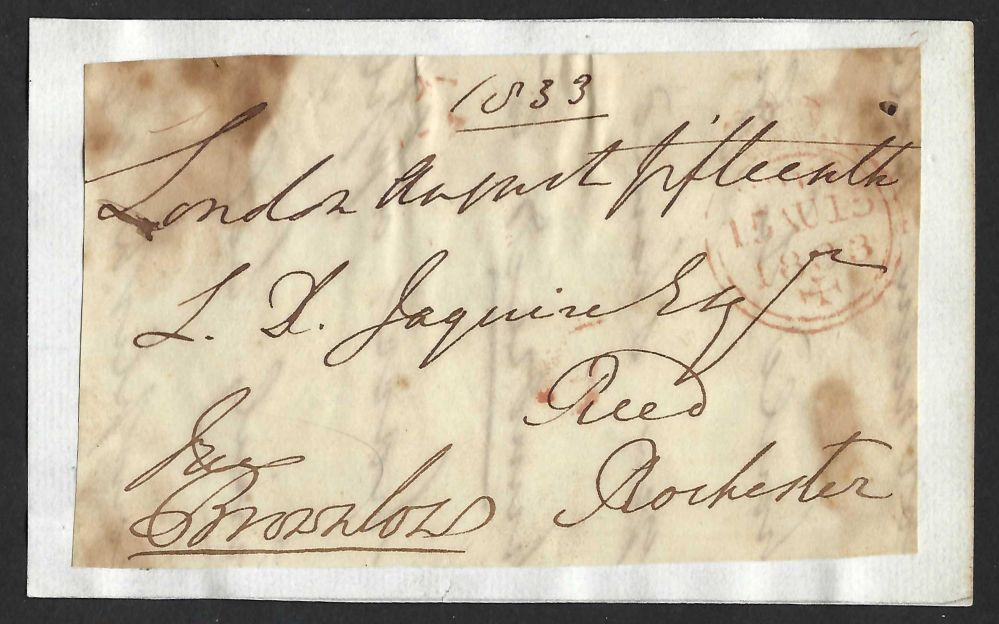 1833
London August fifteenth
L. D. Jaquire Esqr
Reed
Rochester
Free
Brownlow
15 AU 15
1833